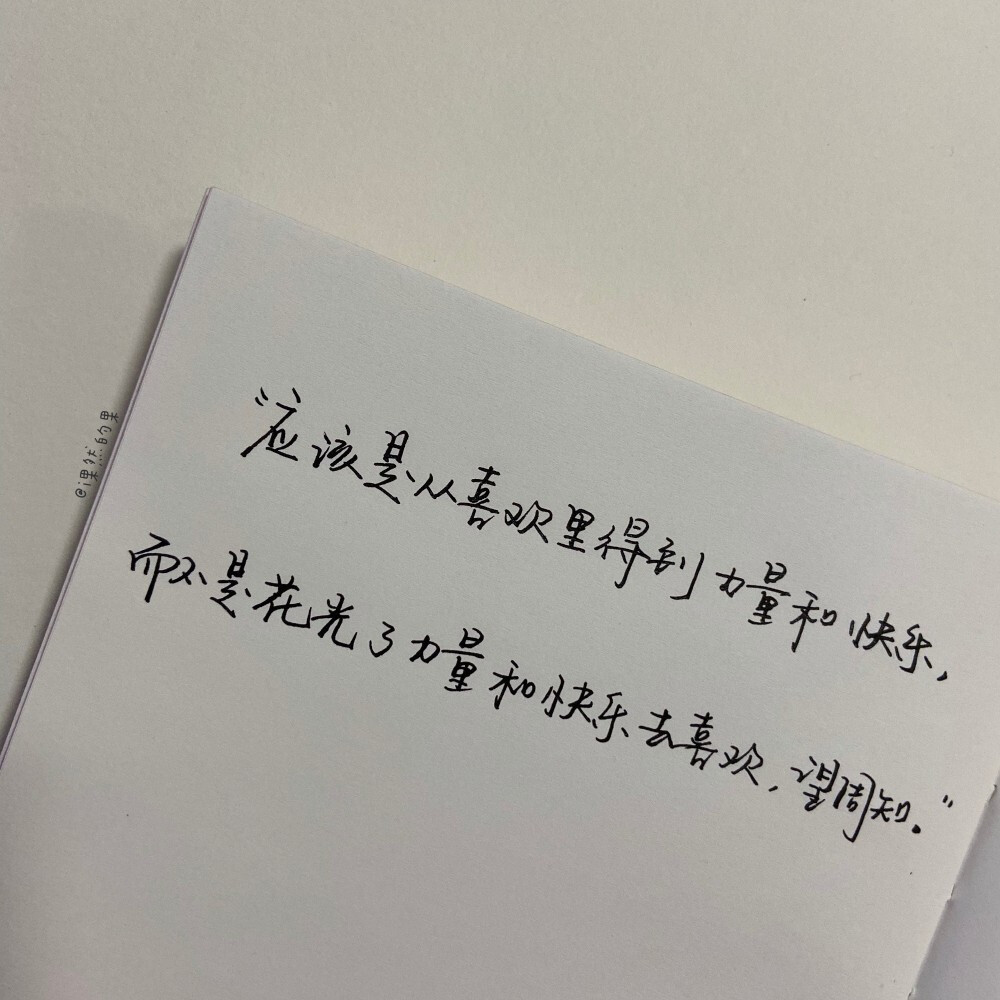 “应该是从喜欢里得到力量和快乐,
而不是花光了力量和快乐去喜欢,望周知。”
@课然的果